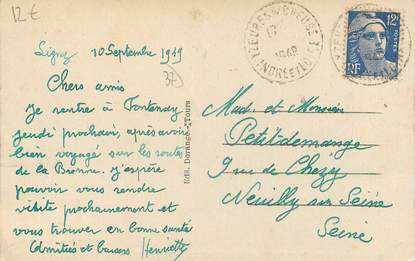 12€
10 Septembre 1949
37
Chers amis
Je rentre à Fontenay
jeudi prochain, après avoir
bien voyagé sur les routes
de la J'espère
pouvoir vous rendre
visite prochainement et
vous trouver en bonne santé
Amitiés et baisers Henriette
Edit. Dorange - Tours
INDRE ET LOIRE
12F
RF
Mad. et Monsieur
Petitdemange
9 rue de Chézy
Neuilly sur Seine
Seine